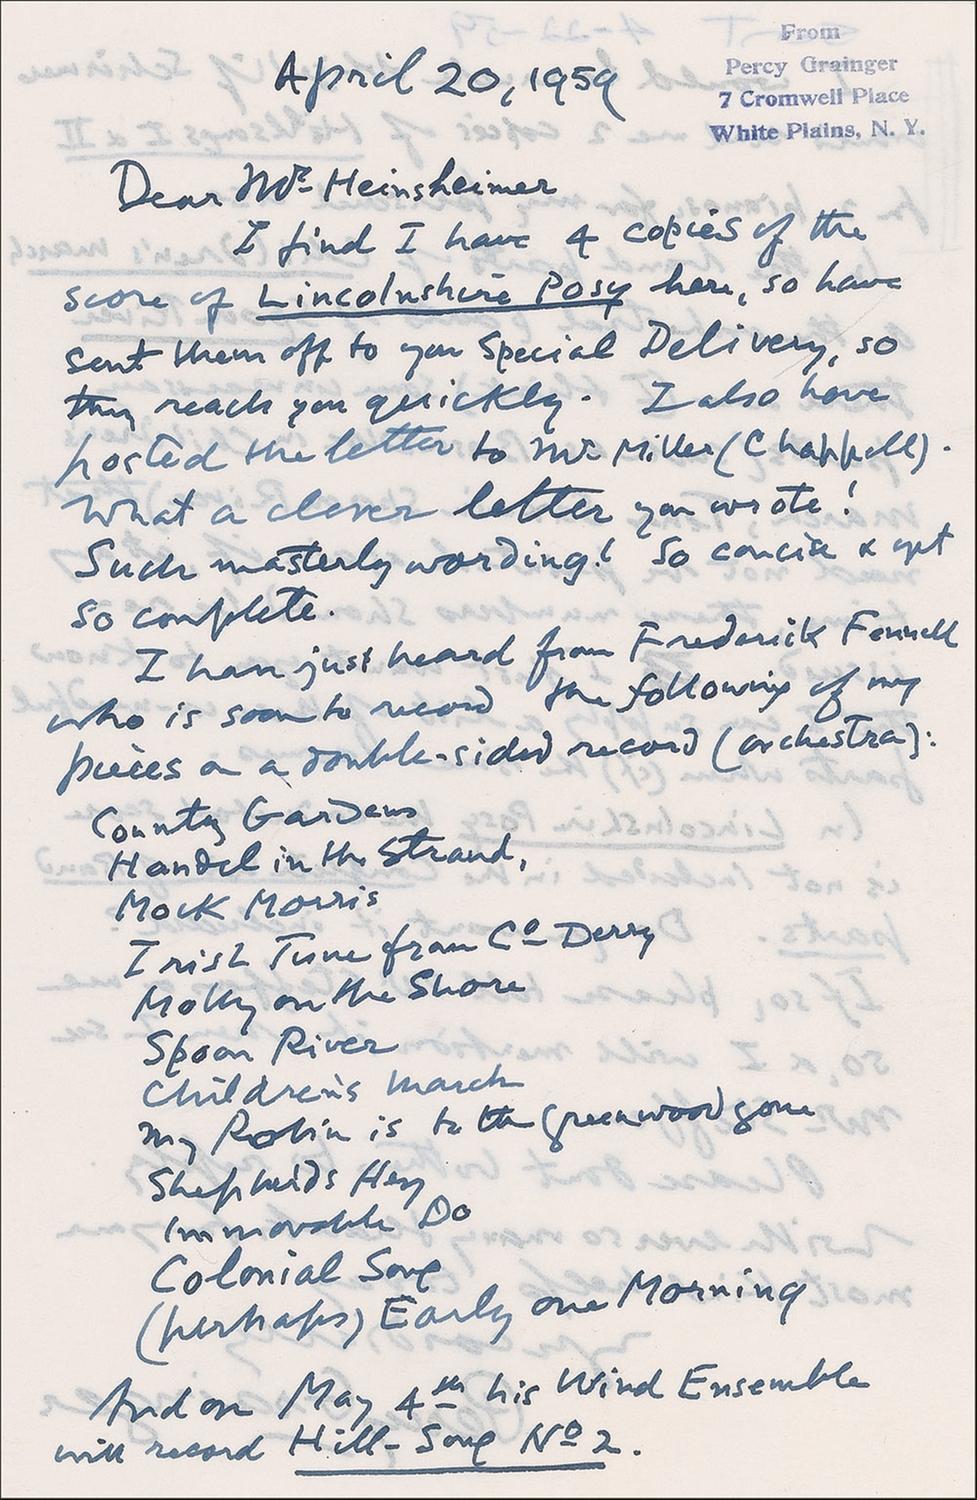 From
Percy Grainger
7 Cromwell Place
White Plains, N. Y.
April 20, 1959
Dear Mr Heinsheimer
I find I have 4 copies of the
score of Lincolnshire Posy here, so have
sent them off to you Special Delivery, so
they reach you quickly. I also have
posted the letter to Mr Miller (Chappell).
What a clever letter you wrote!
Such masterly wording! So concise & yet
so complete.
I have just heard from Frederick Fennell
who is soon to record the following of my
pieces on a double-sided record (orchestra):
Country Gardens
Handel in the Strand,
Mock Morris
Irish Tune from Co Derry
Molly on the Shore
Spoon River
Children's March
My Robin is to the Greenwood gone
Shepherds Hey
Immovable Do
Colonial Song
(perhaps) Early one Morning
And on May 4th his Wind Ensemble
will record Hill-Song No 2.